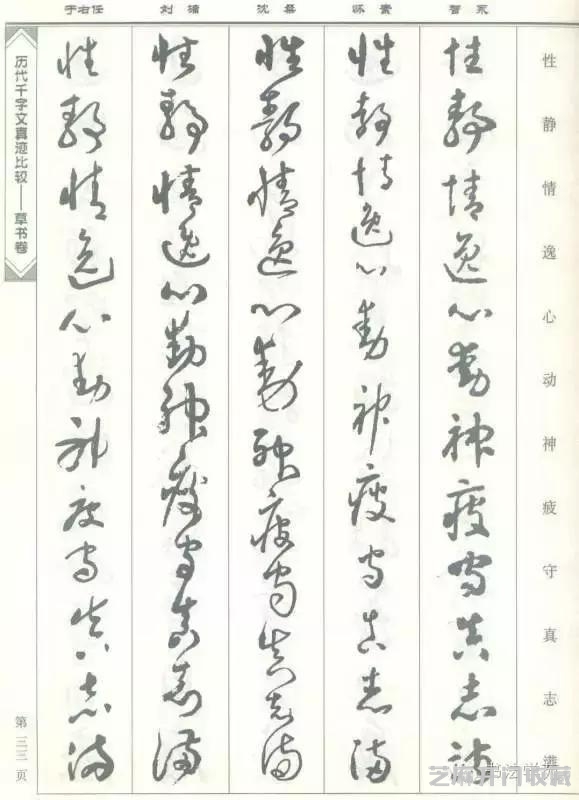 性静情逸心动神疲守真志满
智永
性静情逸心动神疲守真志满
怀素
性静情逸心动神疲守真志满
沈粲
性静情逸心动神疲守真志满
刘墉
性静情逸心动神疲守真志满
于右任
性静情逸心动神疲守真志满
历代千字文真迹比较——草书卷
芝麻开门收藏